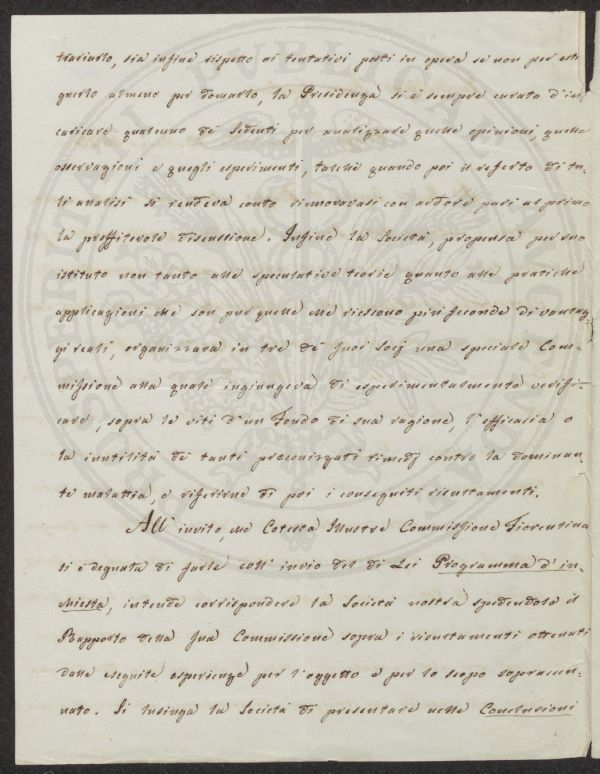 trariarlo, sia infine rispetto ai tentativi posti in opera se non per estin
guerlo almeno per domarlo, la Presidenza si è sempre curata d'in=
caricare qualcuno de' Sedenti per analizzare quelle opinioni, quelle
osservazioni e quegli esperimenti, talchè quando poi il referto di ta=
li analisi si rendeva conto rinnovavasi con ardore pari al primo
la profittevole discussione. Infine la Società, propensa per suo
istituto non tanto alle speculative teorie quanto alle pratiche
applicazioni che son pur quelle che riescono più feconde di vantag
gi reali, organizzava in tre de' suoi Socj una speciale Com=
missione alla quale ingiungeva di esperimentalmente verifi=
care, sopra le viti d'un Fondo di sua ragione, l'efficacia o
la inutilità de' tanti preconizzati rimedj contro la dominan=
te malattia, e riferirne di poi i conseguiti resultamenti.
All' invito, che Cotesta Illustre Commissione Fiorentina
si è degnata di farle coll' invio del di Lei Programma d' in=
chiesta, intende corrispondere la Società nostra spedendole il
Rapporto della sua Commissione sopra i resultamenti ottenuti
dalle eseguite esperienze per l'oggetto e per lo scopo sopraccen=
nato. Si lusinga la Società di presentare nelle Conclusioni